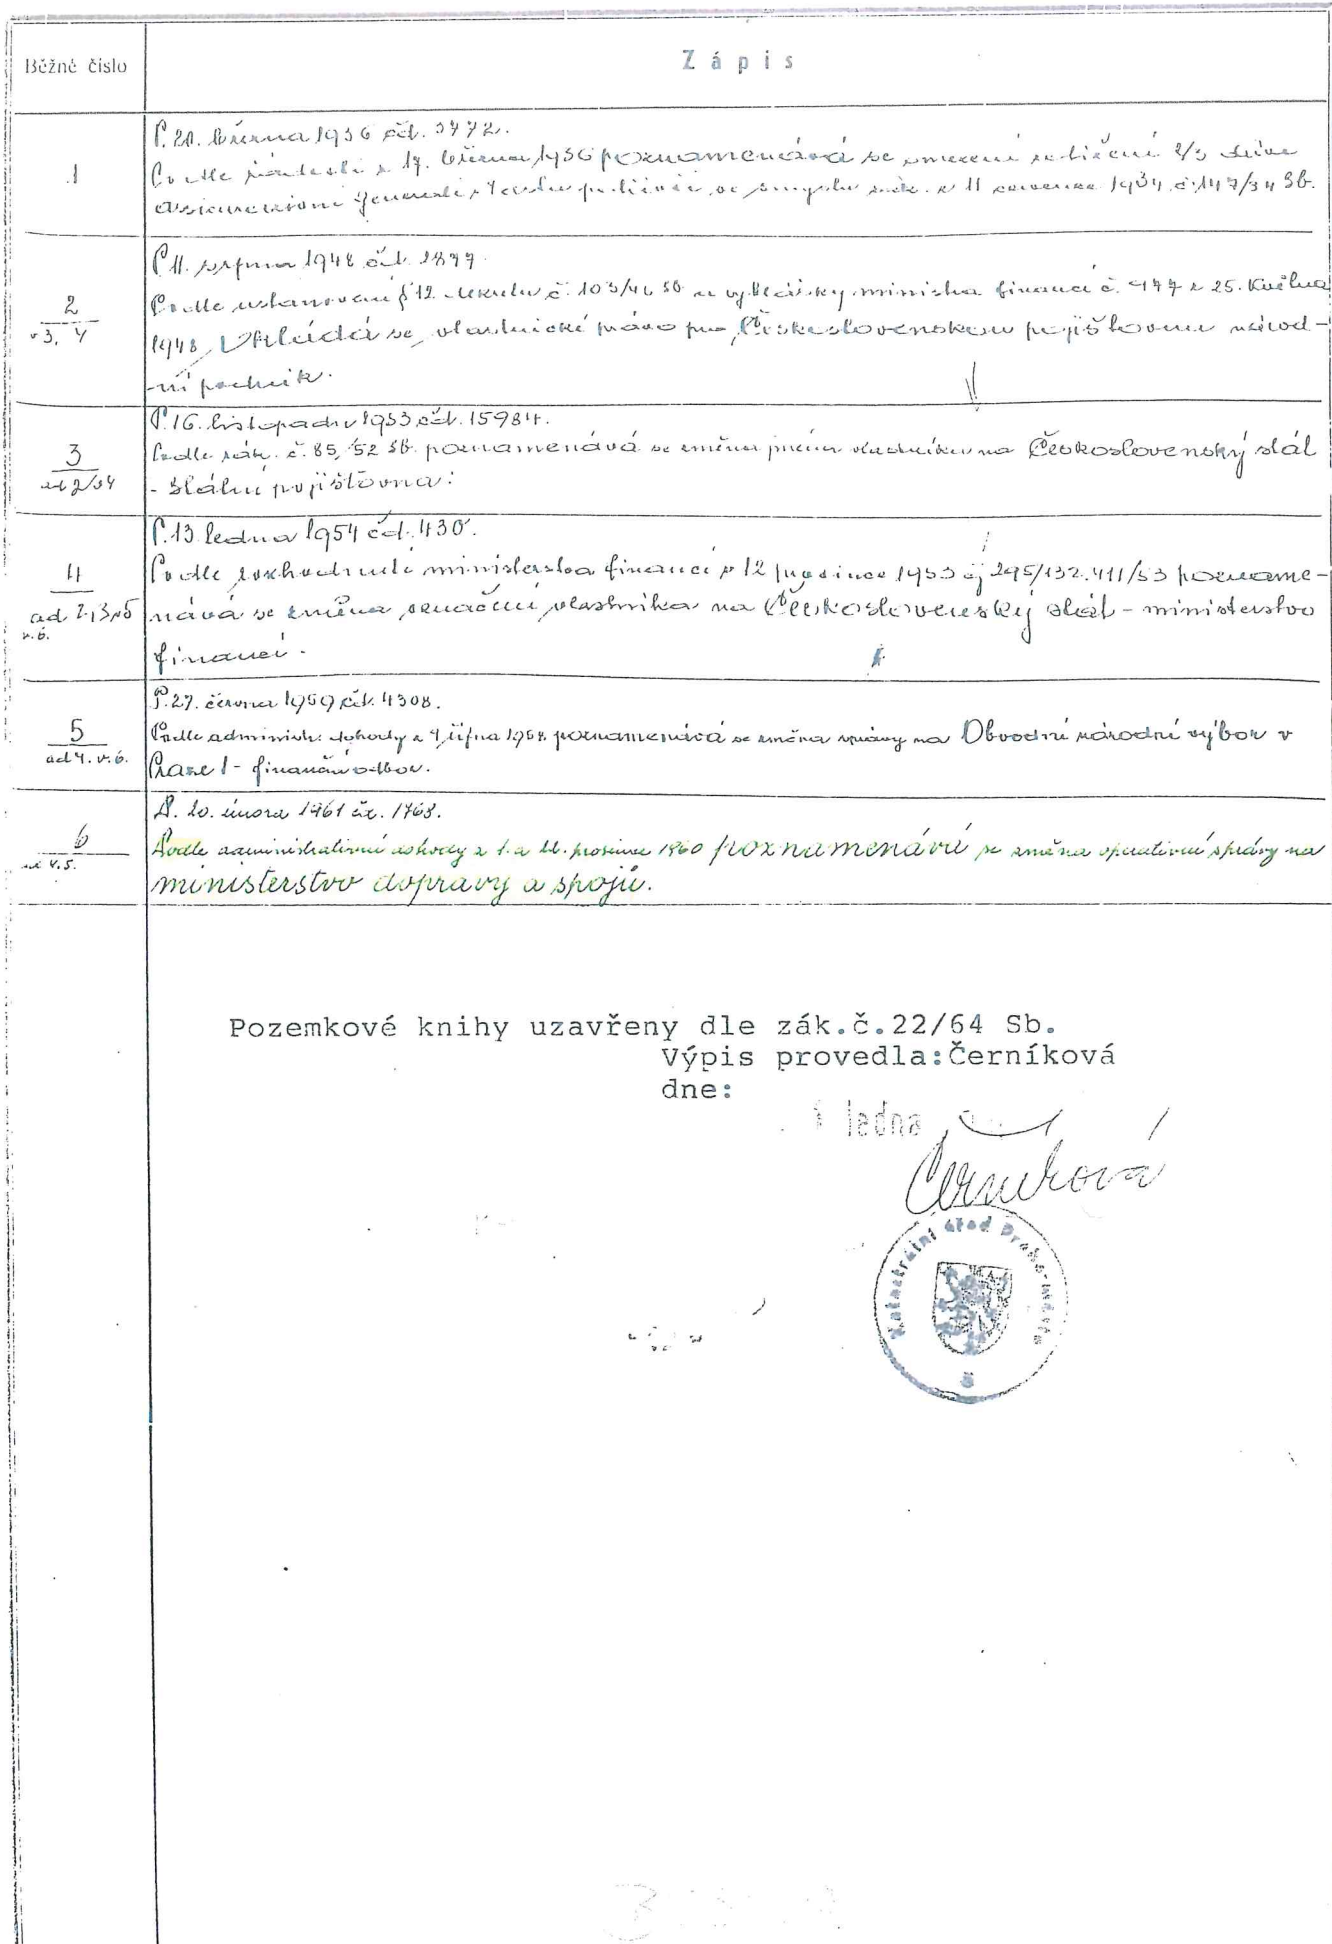 Běžné číslo
Zápis
1
března 1936 čd. 3772.
17. března 1936 poznamenává se omezení 2/3
Generali ve smyslu zák. z 11 července 1934 č. 147/34 Sb.
2
3, 4
P. 11. srpna 1948 čd.
Podle ustanovení § 12 dekretu č. 103/46 Sb a vyhlášky ministra financí č. z 25. května
1948, Vkládá se, vlastnické právo pro Československou pojišťovnu národ-
ní podnik.
3
ad 2/
P. 16. listopadu 1953 čd. 15984.
Podle zák. č. 85/52 Sb. poznamenává se změna jména vlastníka na Československý stát
- Státní pojišťovna:
4
ad 2,3,5
v.6.
P. 13. ledna 1954 čd. 430.
Podle rozhodnutí ministerstva financí z 12 prosince 1953 čj 295/132.411/53 pozname-
nává se změna označení vlastníka na Československý stát - ministerstvo
financí.
5
ad 4. v. 6.
P. 27. června 1959 čd. 4308.
Podle administr. dohody z října 1958 poznamenává se změna správy na Obvodní národní výbor v
Praze 1 - finanční odbor.
6
ad 4.5.
P. 20. února 1961 čd. 1768.
Podle administrativní dohody z 1. a prosince 1960 poznamenává se změna operativní správy na
ministerstvo dopravy a spojů.
Pozemkové knihy uzavřeny dle zák.č.22/64 Sb.
Výpis provedla:Černíková
dne:
ledna
Černíková
Katastrální úřad Praha-město
8